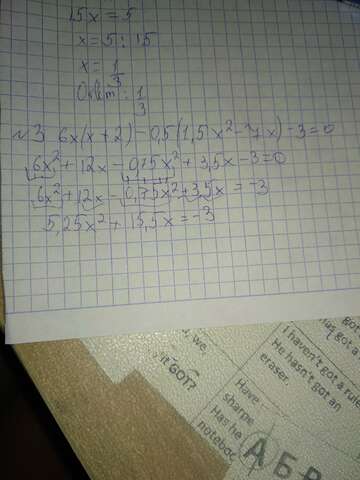 15x = 5
x = 5 : 15
x = 1/3
Ответ: 1/3
№3 6x(x+2) - 0,5(1,5x² - 7x) - 3 = 0
6x² + 12x - 0,75x² + 3,5x - 3 = 0
6x² + 12x - 0,75x² + 3,5x = -3
5,25x² + 15,5x = -3
I haven't got a
He hasn't got an
eraser.
it GOT?
Have
sharpe
Has he
noteboo
А Б В